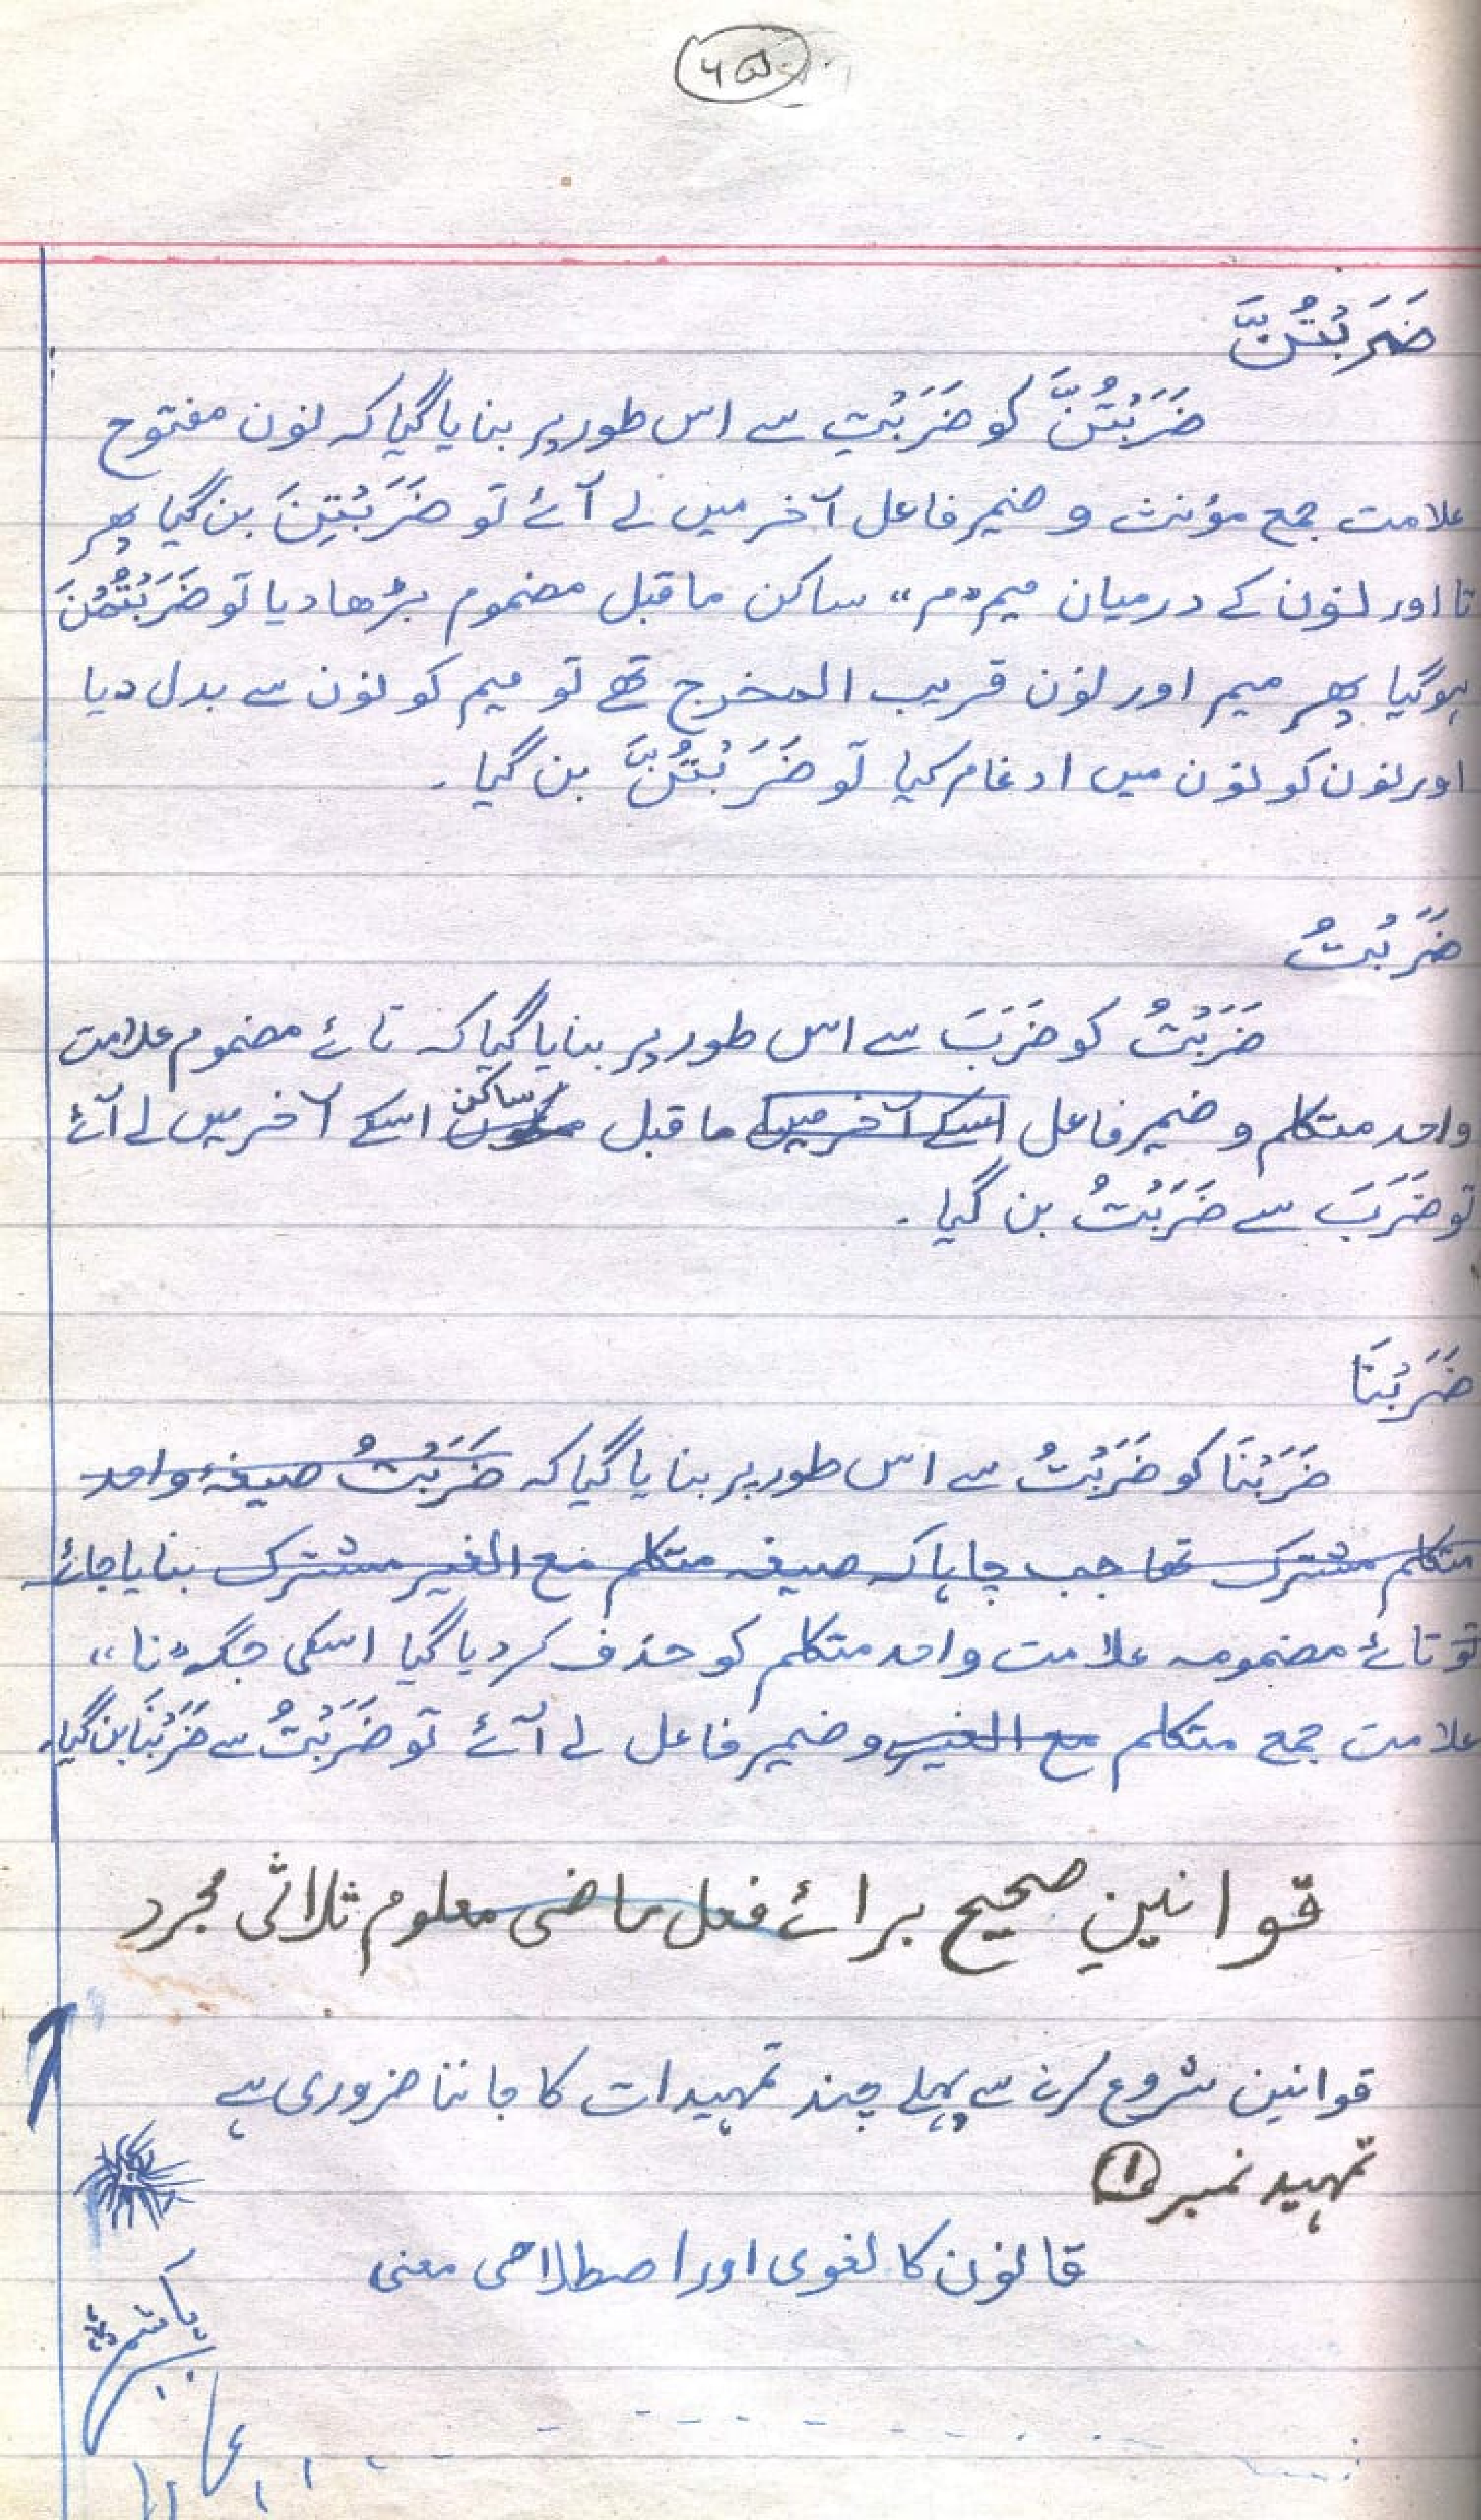 ضَرَبْتُنَّ
ضَرَبْتُنَّ کو ضَرَبْتِ سے اس طور پر بنایا گیا کہ نون مفتوح
علامت جمع مؤنث و ضمیر فاعل آخر میں لے آئے تو ضَرَبْتِنَ بن گیا پھر
تا اور نون کے درمیان میم "م" ساکن ما قبل مضموم بڑھا دیا تو ضَرَبْتُمْنَ
ہو گیا پھر میم اور نون قریب المخرج تھے تو میم کو نون سے بدل دیا
اور نون کو نون میں ادغام کیا تو ضَرَبْتُنَّ بن گیا۔
ضَرَبْتُ
ضَرَبْتُ کو ضَرَبَ سے اس طور پر بنایا گیا کہ تائے مضموم علامت
واحد متکلم و ضمیر فاعل اسکے آخر میں ما قبل ساکن اسکے آخر میں لے آئے
تو ضَرَبَ سے ضَرَبْتُ بن گیا۔
ضَرَبْنَا
ضَرَبْنَا کو ضَرَبْتُ سے اس طور پر بنایا گیا کہ ضَرَبْتُ صیغہ واحد
متکلم مشترک تھا جب چاہا کہ صیغہ متکلم مع الغیر مشترک بنایا جائے
تو تائے مضمومہ علامت واحد متکلم کو حذف کر دیا گیا اسکی جگہ "نا"
علامت جمع متکلم مع الغیر و ضمیر فاعل لے آئے تو ضَرَبْتُ سے ضَرَبْنَا بن گیا۔
قوانینِ صحیح برائے فعل ماضی معلوم ثلاثی مجرد
قوانین شروع کرنے سے پہلے چند تمہیدات کا جاننا ضروری ہے
تمہید نمبر ①
قانون کا لغوی اور اصطلاحی معنی